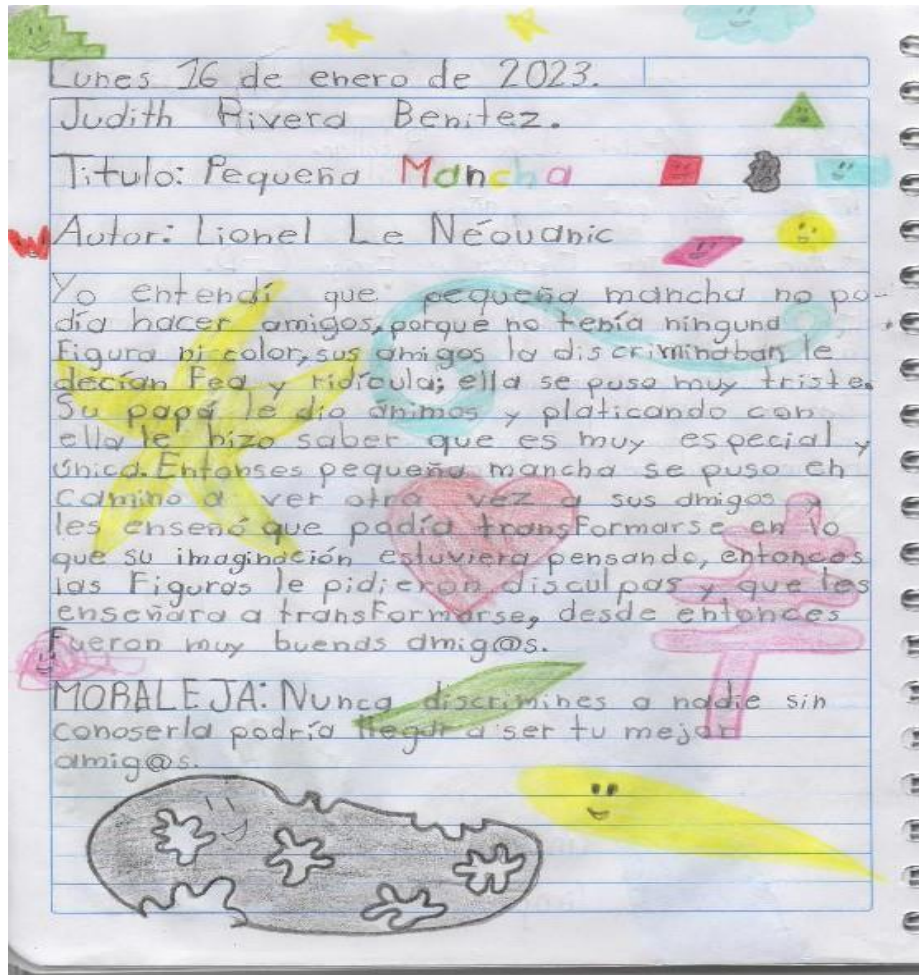 Lunes 16 de enero de 2023.
Judith Rivera Benitez.
Titulo: Pequeña Mancha
Autor: Lionel Le Néouanic
Yo entendí que pequeña mancha no po-
día hacer amigos, porque no tenía ninguna
Figura ni color, sus amigos la discriminaban, le
decían Fea y ridícula; ella se puso muy triste.
Su papá le dio ánimos y platicando con
ella le hizo saber que es muy especial y
única. Entonses pequeña mancha se puso en
camino a ver otra vez a sus amigos y
les enseñó que podía transFormarse en lo
que su imaginación estuviera pensando, entonces
las Figuras le pidieron disculpas y que les
enseñara a transFormarse, desde entonces
Fueron muy buenas amig@s.
MORALEJA: Nunca discrimines a nadie sin
conoserla podría llegar a ser tu mejor
amig@s.